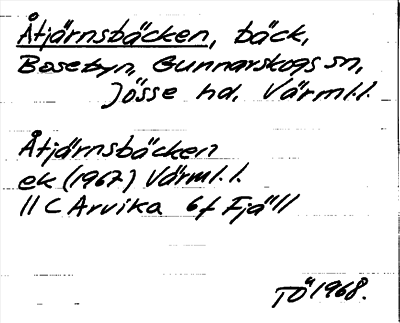 Åtjärnsbäcken, bäck,
Bosebyn, Gunnarskogs sn,
Jösse hd, Värml.l.
Åtjärnsbäcken
ek (1967) Värml.l.
11 C Arvika 6f Fjäll
TÖ 1968.